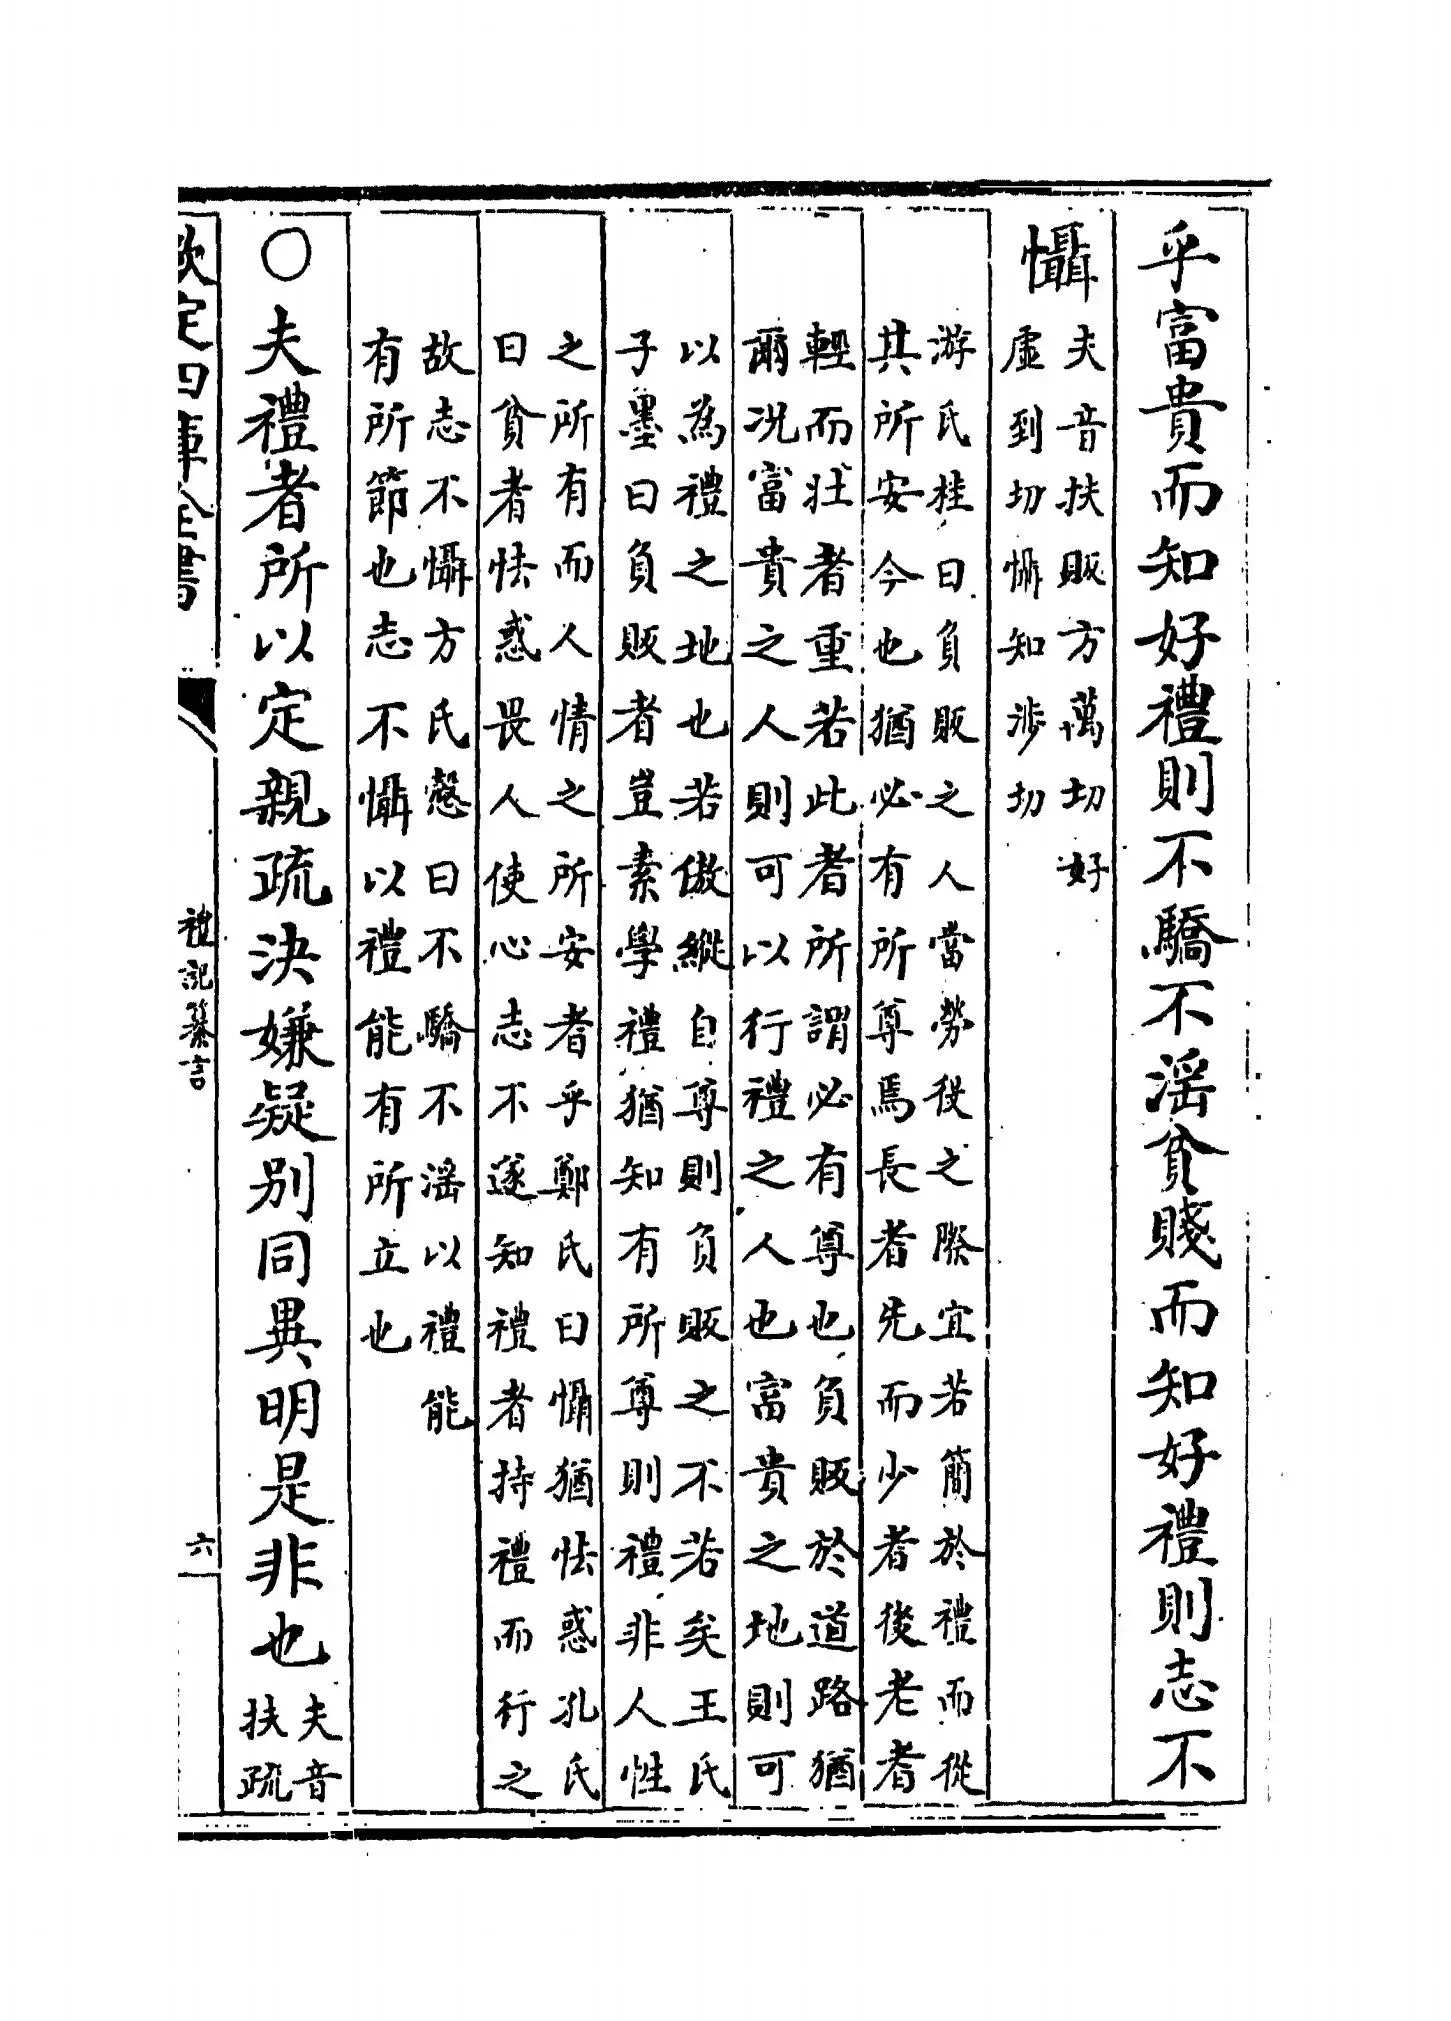 乎富貴而知好禮則不驕不滛貧賤而知好禮則志不
懾
夫音扶販方萬切好
虚到切懾知渉切
游氏桂曰負販之人當勞役之際宜若簡於禮而從
其所安今也猶必有所尊焉長者先而少者後老者
輕而壮者重若此者所謂必有尊也負販於道路猶
爾况富貴之人則可以行禮之人也富貴之地則可
以為禮之地也若傲縱自尊則負販之不若矣王氏
子墨曰負販者豈素學禮猶知有所尊則禮非人性
之所有而人情之所安者乎鄭氏曰懾猶怯惑孔氏
曰貧者怯惑畏人使心志不遂知禮者持禮而行之
故志不懾方氏慤曰不驕不滛以禮能
有所節也志不懾以禮能有所立也
○夫禮者所以定親疏決嫌疑别同異明是非也
夫音
扶疏
欽定四庫全書
禮記纂言
六